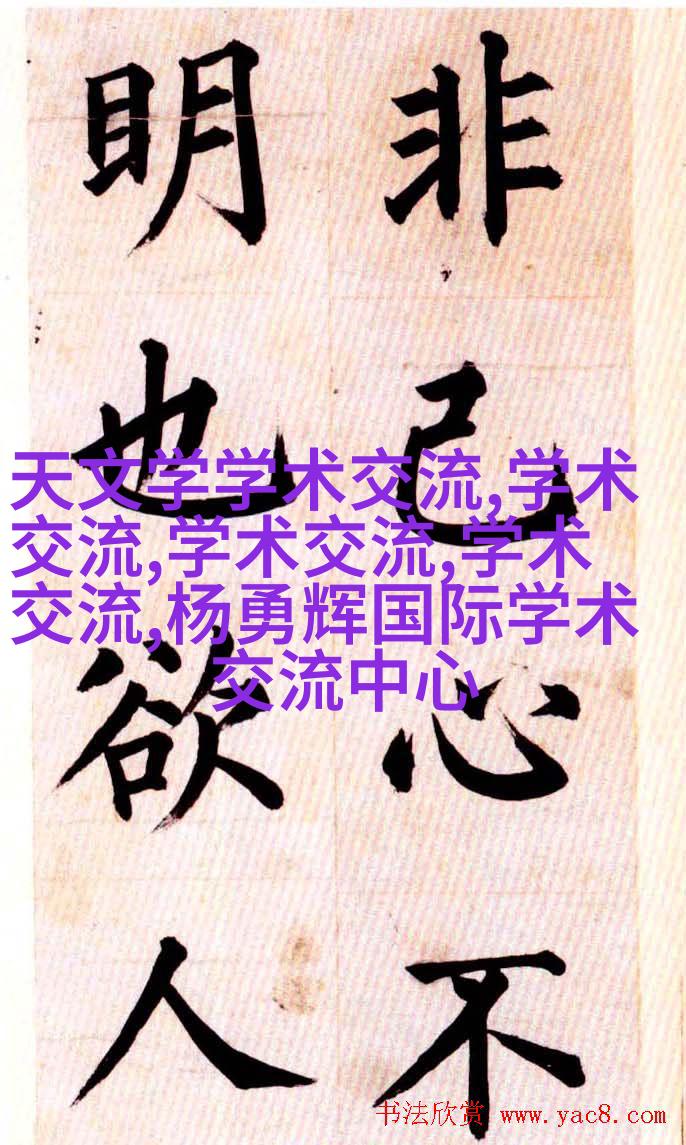 非己心不
明也欲人
天文学学术交流,学术
交流,学术交流,学术
交流,杨勇辉国际学术
交流中心
书法欣赏 www.yac8.com